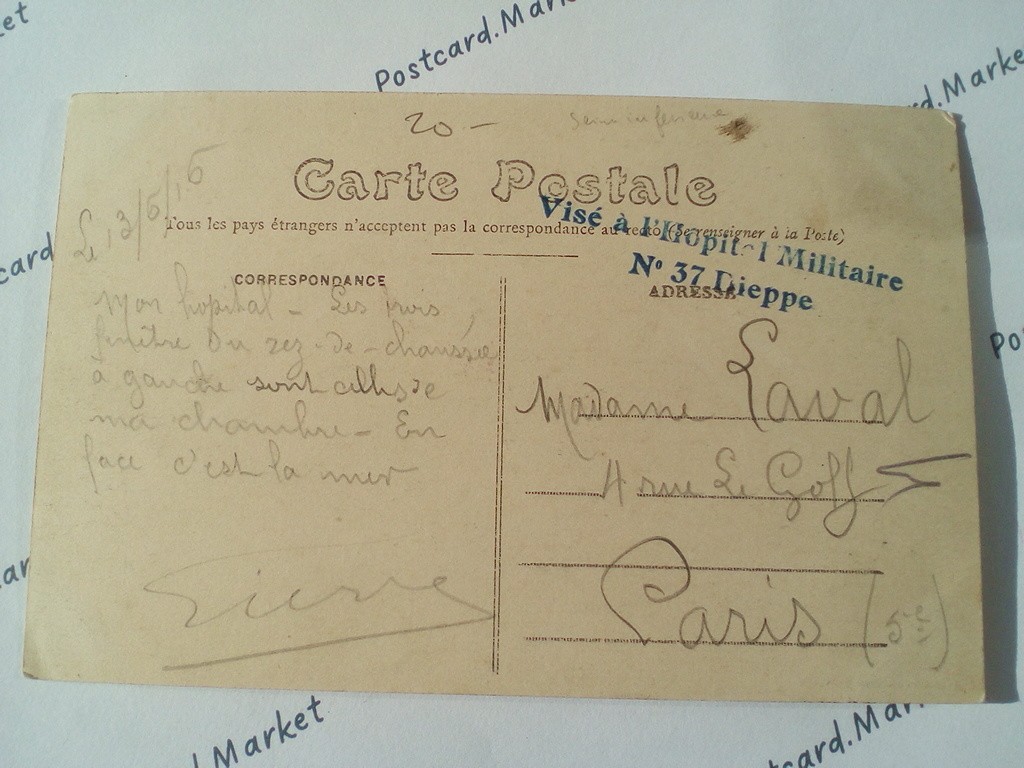 et
Postcard.Mark
rd.Marke
20 -
Carte Postale
Tous les pays étrangers n'acceptent pas la correspondance au recto (Se renseigner à la Poste)
Visé à l'Hopital Militaire
N° 37 Dieppe
Le 13/6/16
CORRESPONDANCE
Mon hopital - Les trois
fenêtre du rez-de-chaussée
à gauche sont celles de
ma chambre - En
face c'est la mer
Pierre
ADRESSE
Madame Laval
4 rue Le Goff
Paris (5e)
card
Po
ar
d.Market
tcard.Mar